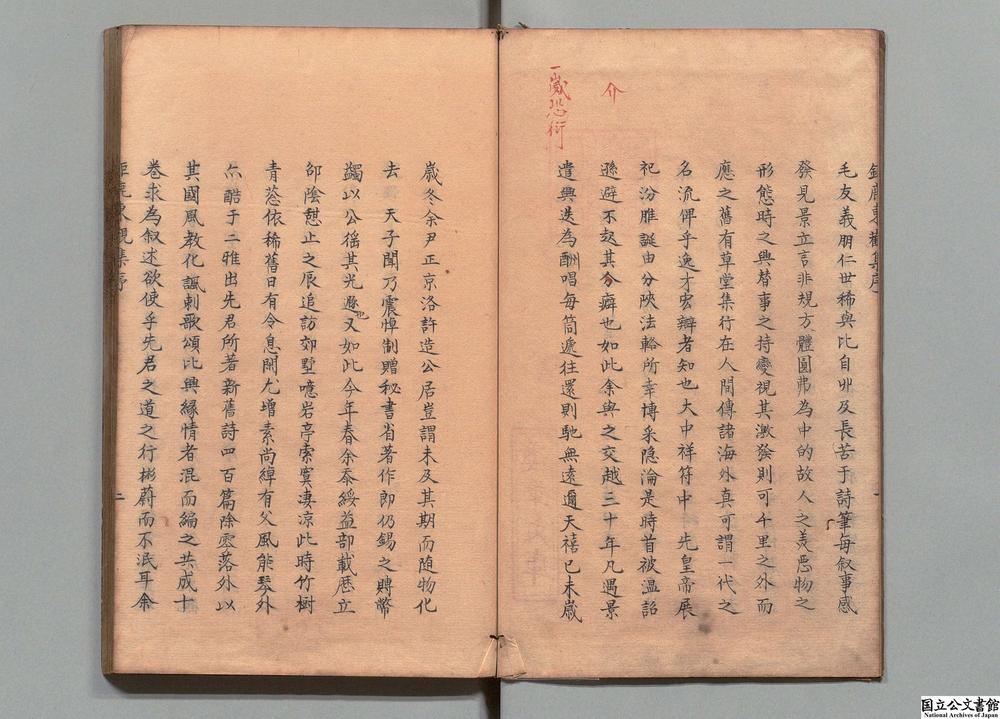 鉅鹿東觀集序 一
毛友義朋仁世稀與比自丱及長苦于詩筆每叙事感
發見景立言非規方體圓弗為中的故人之美惡物之
形態時之興替事之持變視其激發則可千里之外而
應之舊有草堂集行在人間傳諸海外真可謂一代之
名流俾乎逸才宏辯者知也大中祥符中 先皇帝展
祀汾脽誕由分陝法輅所幸博采隐淪是時首被温詔
遜避不起其介癖也如此余與之交越三十年凡遇景
遣興迭為酬唱每筒遞往還則馳無遠邇天禧已未歲
介
一歲恐衍
歲冬余尹正京洛許造公居豈謂未及其期而随物化
去 天子聞乃震悼制贈秘書省著作郎仍錫之賻幣
蠲以公徭其光遯也又如此今年春余忝綏益部載歷立
郊陰憇止之辰追訪郊墅噫岩亭索寞凄凉此時竹樹
青葱依稀舊日有令息閒尤增素尚綽有父風能琴外
尒酷于二雅出先君所著新舊詩四百篇除零落外以
其國風教化諷刺歌頌比興緣情者混而編之共成十
卷求為叙述欲使乎先君之道之行彬蔚而不泯耳余
鉅鹿東觀集序 二
国立公文書館
National Archives of Japan